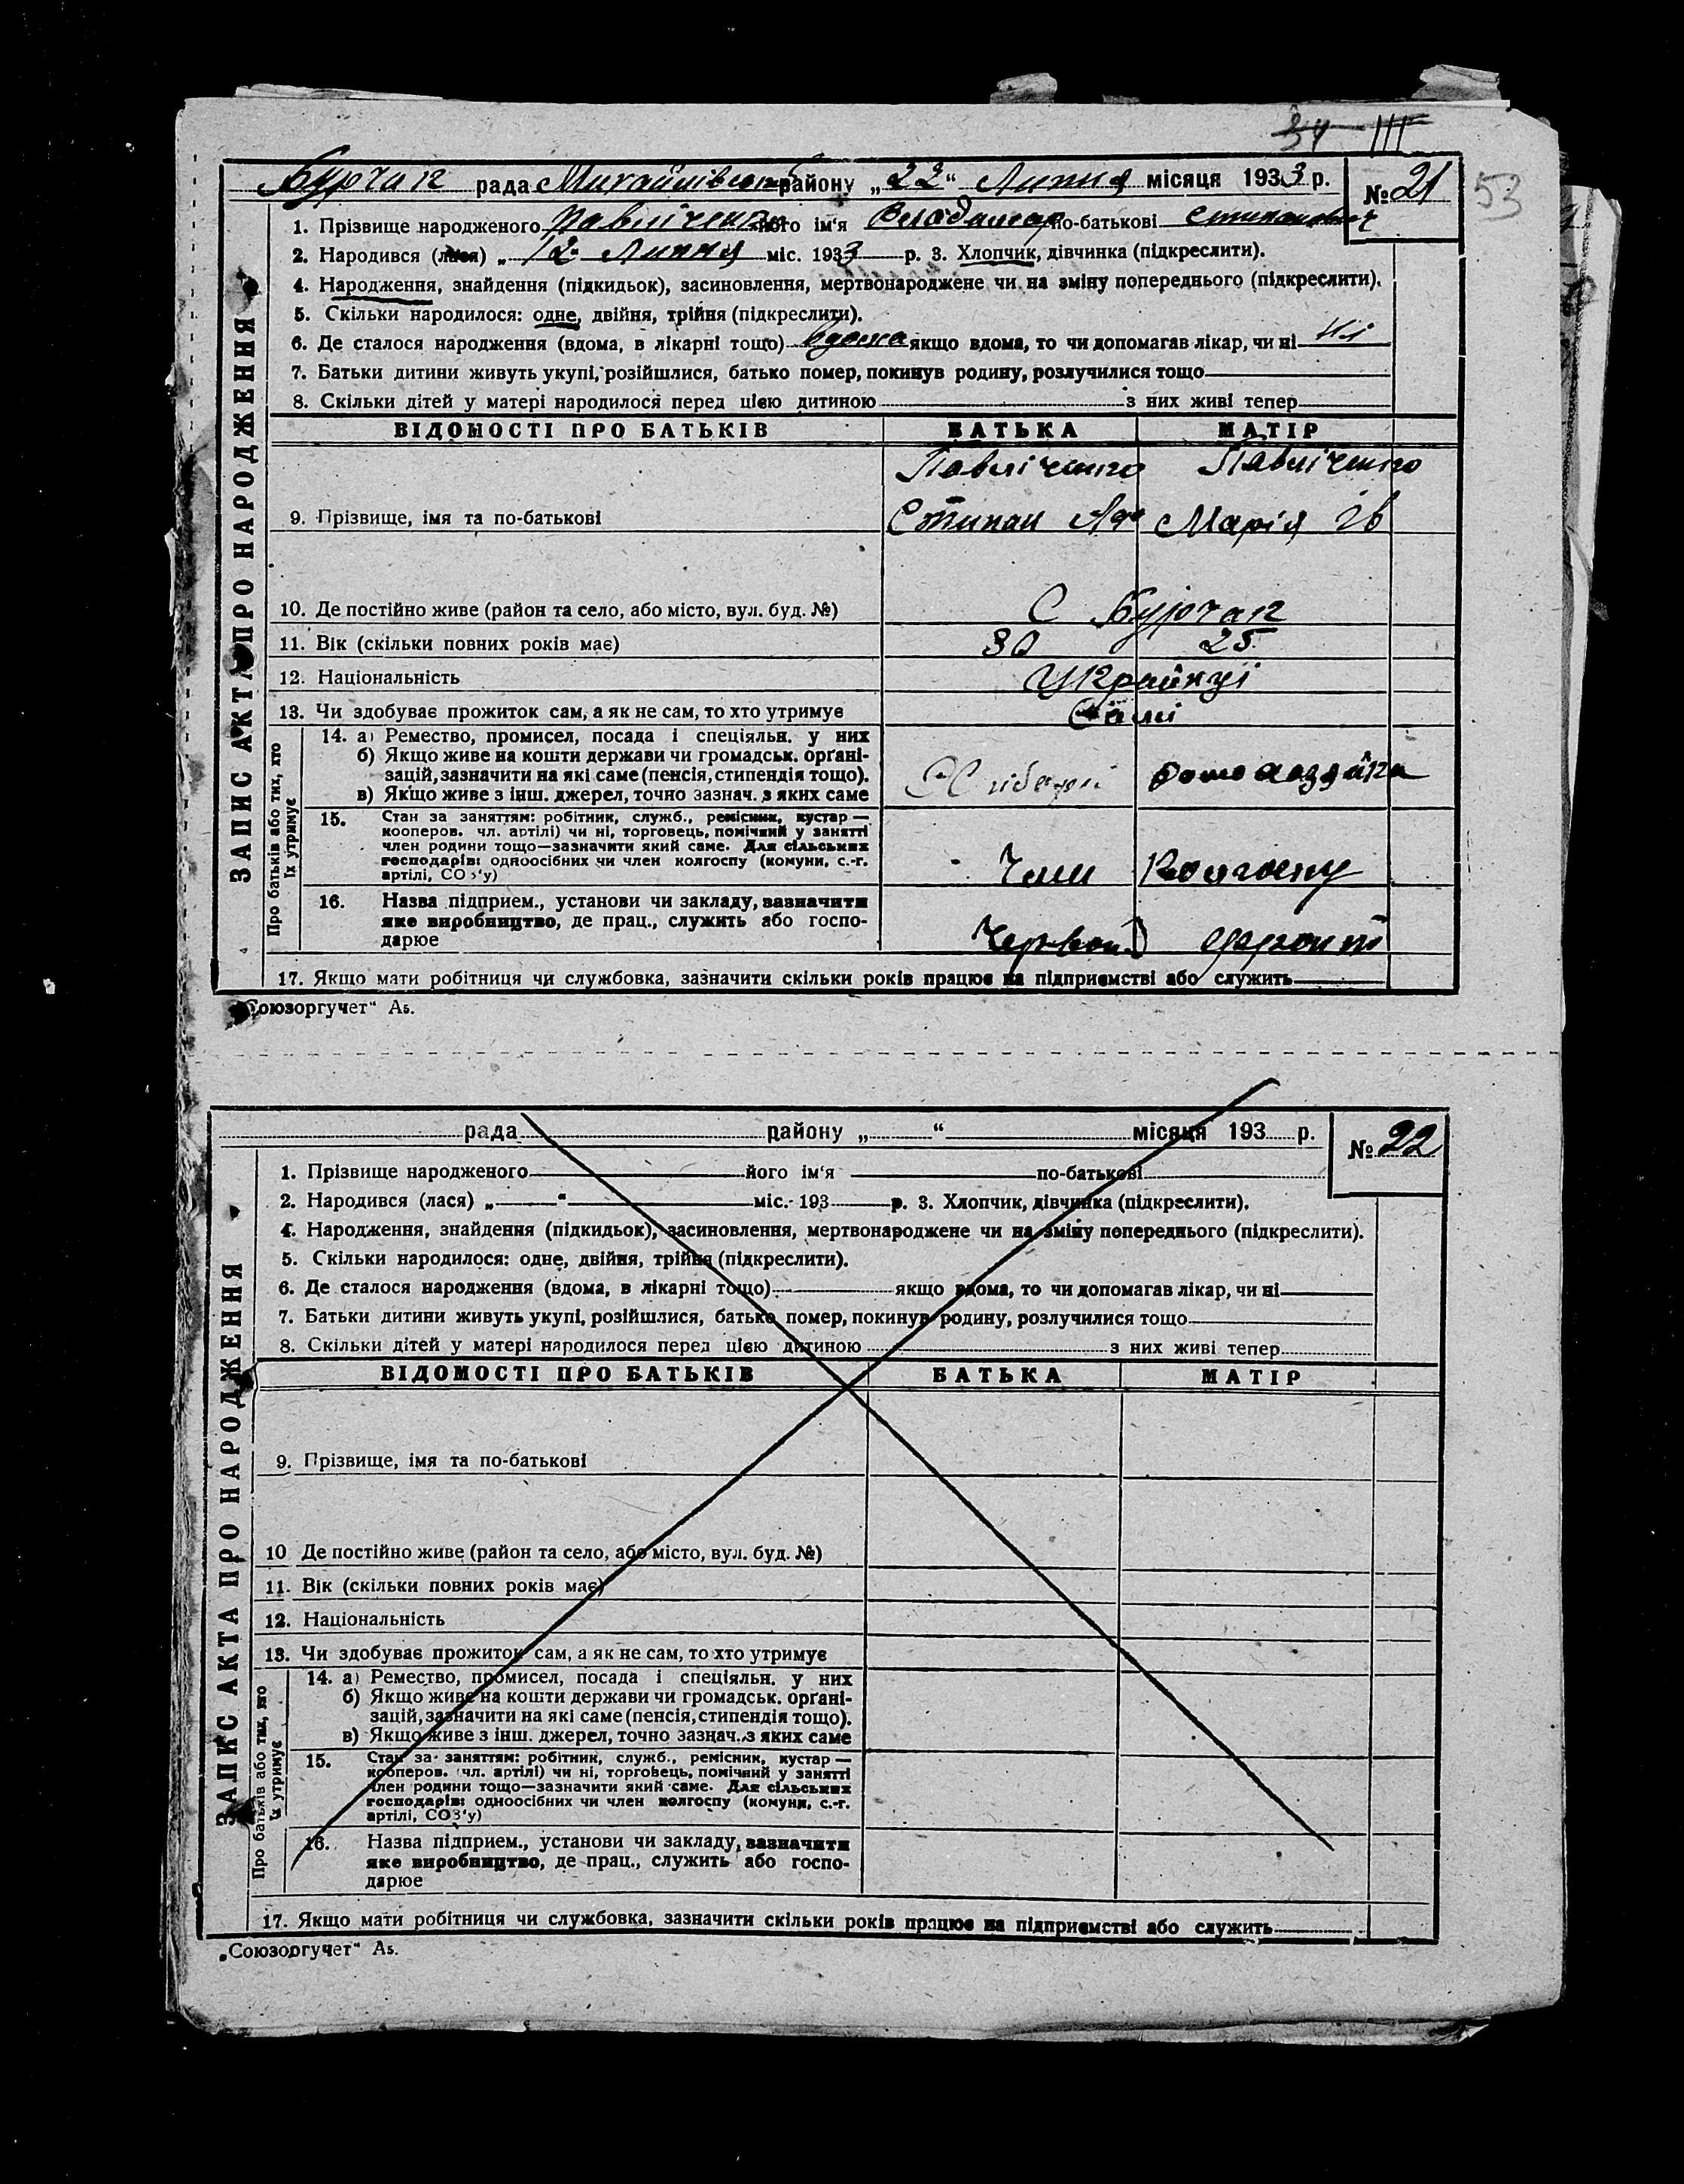 34 III
Бурчак рада Михайлівськ району „22“ Липня місяця 1933 р. № 21
53
1. Прізвище народженого Павліченко його ім‘я Влодимер по-батькові Степанович
2. Народився (лася) „12“ Липня міс. 1933 р. 3. Хлопчик, дівчинка (підкреслити).
4. Народження, знайдення (підкидьок), засиновлення, мертвонароджене чи на зміну попереднього (підкреслити).
5. Скільки народилося: одне, двійня, трійня (підкреслити).
6. Де сталося народження (вдома, в лікарні тощо) вдома якщо вдома, то чи допомагав лікар, чи ні Ні
7. Батьки дитини живуть укупі, розійшлися, батько помер, покинув родину, розлучилися тощо
8. Скільки дітей у матері народилося перед цією дитиною з них живі тепер
ЗАПИС АКТА ПРО НАРОДЖЕННЯ
ВІДОМОСТІ ПРО БАТЬКІВ БАТЬКА МАТІР
Павліченко Павліченко
9. Прізвище, імя та по-батькові Степан Марія Ів
10. Де постійно живе (район та село, або місто, вул. буд. №) С Бурчак
11. Вік (скільки повних років має) 30 25
12. Національність Українці
13. Чи здобуває прожиток сам, а як не сам, то хто утримує Самі
Про батьків або тих, хто їх утримує
14. а) Ремество, промисел, посада і спеціяльн. у них
б) Якщо живе на кошти держави чи громадськ. орґані-
зацій, зазначити на які саме (пенсія, стипендія тощо).
в) Якщо живе з інш. джерел, точно зазнач. з яких саме
Хлібороб Домохазяйка
15. Стан за заняттям: робітник, служб., ремісник, кустар —
кооперов. чл. артілі) чи ні, торговець, помічний у занятті
член родини тощо—зазначити який саме. Для сільських
господарів: одноосібних чи член колгоспу (комуни, с.-г.
артілі, СОЗ‘у)
Член Колгоспу
16. Назва підприєм., установи чи закладу, зазначити
яке виробництво, де прац., служить або госпо-
дарюе
Червон
17. Якщо мати робітниця чи службовка, зазначити скільки років працює на підприємстві або служить
„Союзоргучет“ А5.
рада району „ “ місяця 193 р. № 22
1. Прізвище народженого його ім‘я по-батькові
2. Народився (лася) „ “ міс. 193 р. 3. Хлопчик, дівчинка (підкреслити).
4. Народження, знайдення (підкидьок), засиновлення, мертвонароджене чи на зміну попереднього (підкреслити).
5. Скільки народилося: одне, двійня, трійня (підкреслити).
6. Де сталося народження (вдома, в лікарні тощо) якщо вдома, то чи допомагав лікар, чи ні
7. Батьки дитини живуть укупі, розійшлися, батько помер, покинув родину, розлучилися тощо
8. Скільки дітей у матері народилося перед цією дитиною з них живі тепер
ЗАПИС АКТА ПРО НАРОДЖЕННЯ
ВІДОМОСТІ ПРО БАТЬКІВ БАТЬКА МАТІР
9. Прізвище, імя та по-батькові
10 Де постійно живе (район та село, або місто, вул. буд. №)
11. Вік (скільки повних років має)
12. Національність
13. Чи здобуває прожиток сам, а як не сам, то хто утримує
Про батьків або тих, хто їх утримує
14. а) Ремество, промисел, посада і спеціяльн. у них
б) Якщо живе на кошти держави чи громадськ. орґані-
зацій, зазначити на які саме (пенсія, стипендія тощо).
в) Якщо живе з інш. джерел, точно зазнач. з яких саме
15. Стан за заняттям: робітник, служб., ремісник, кустар —
кооперов. чл. артілі) чи ні, торговець, помічний у занятті
член родини тощо—зазначити який саме. Для сільських
господарів: одноосібних чи член колгоспу (комуни, с.-г.
артілі, СОЗ‘у)
16. Назва підприєм., установи чи закладу, зазначити
яке виробництво, де прац., служить або госпо-
дарюе
17. Якщо мати робітниця чи службовка, зазначити скільки років працює на підприємстві або служить
„Союзоргучет“ А5.